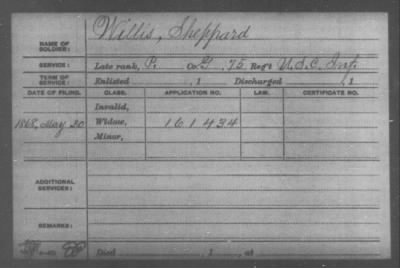 NAME OF SOLDIER: Willis, Sheppard
SERVICE: Late rank, P. Co. G, 75 Reg't U.S.C. Inf.
TERM OF SERVICE: Enlisted , 1 Discharged , 1
DATE OF FILING. CLASS. APPLICATION NO. LAW. CERTIFICATE NO.
Invalid,
1868, May 20 Widow, 161434
Minor,
ADDITIONAL SERVICES:
REMARKS:
Died , 1 , at